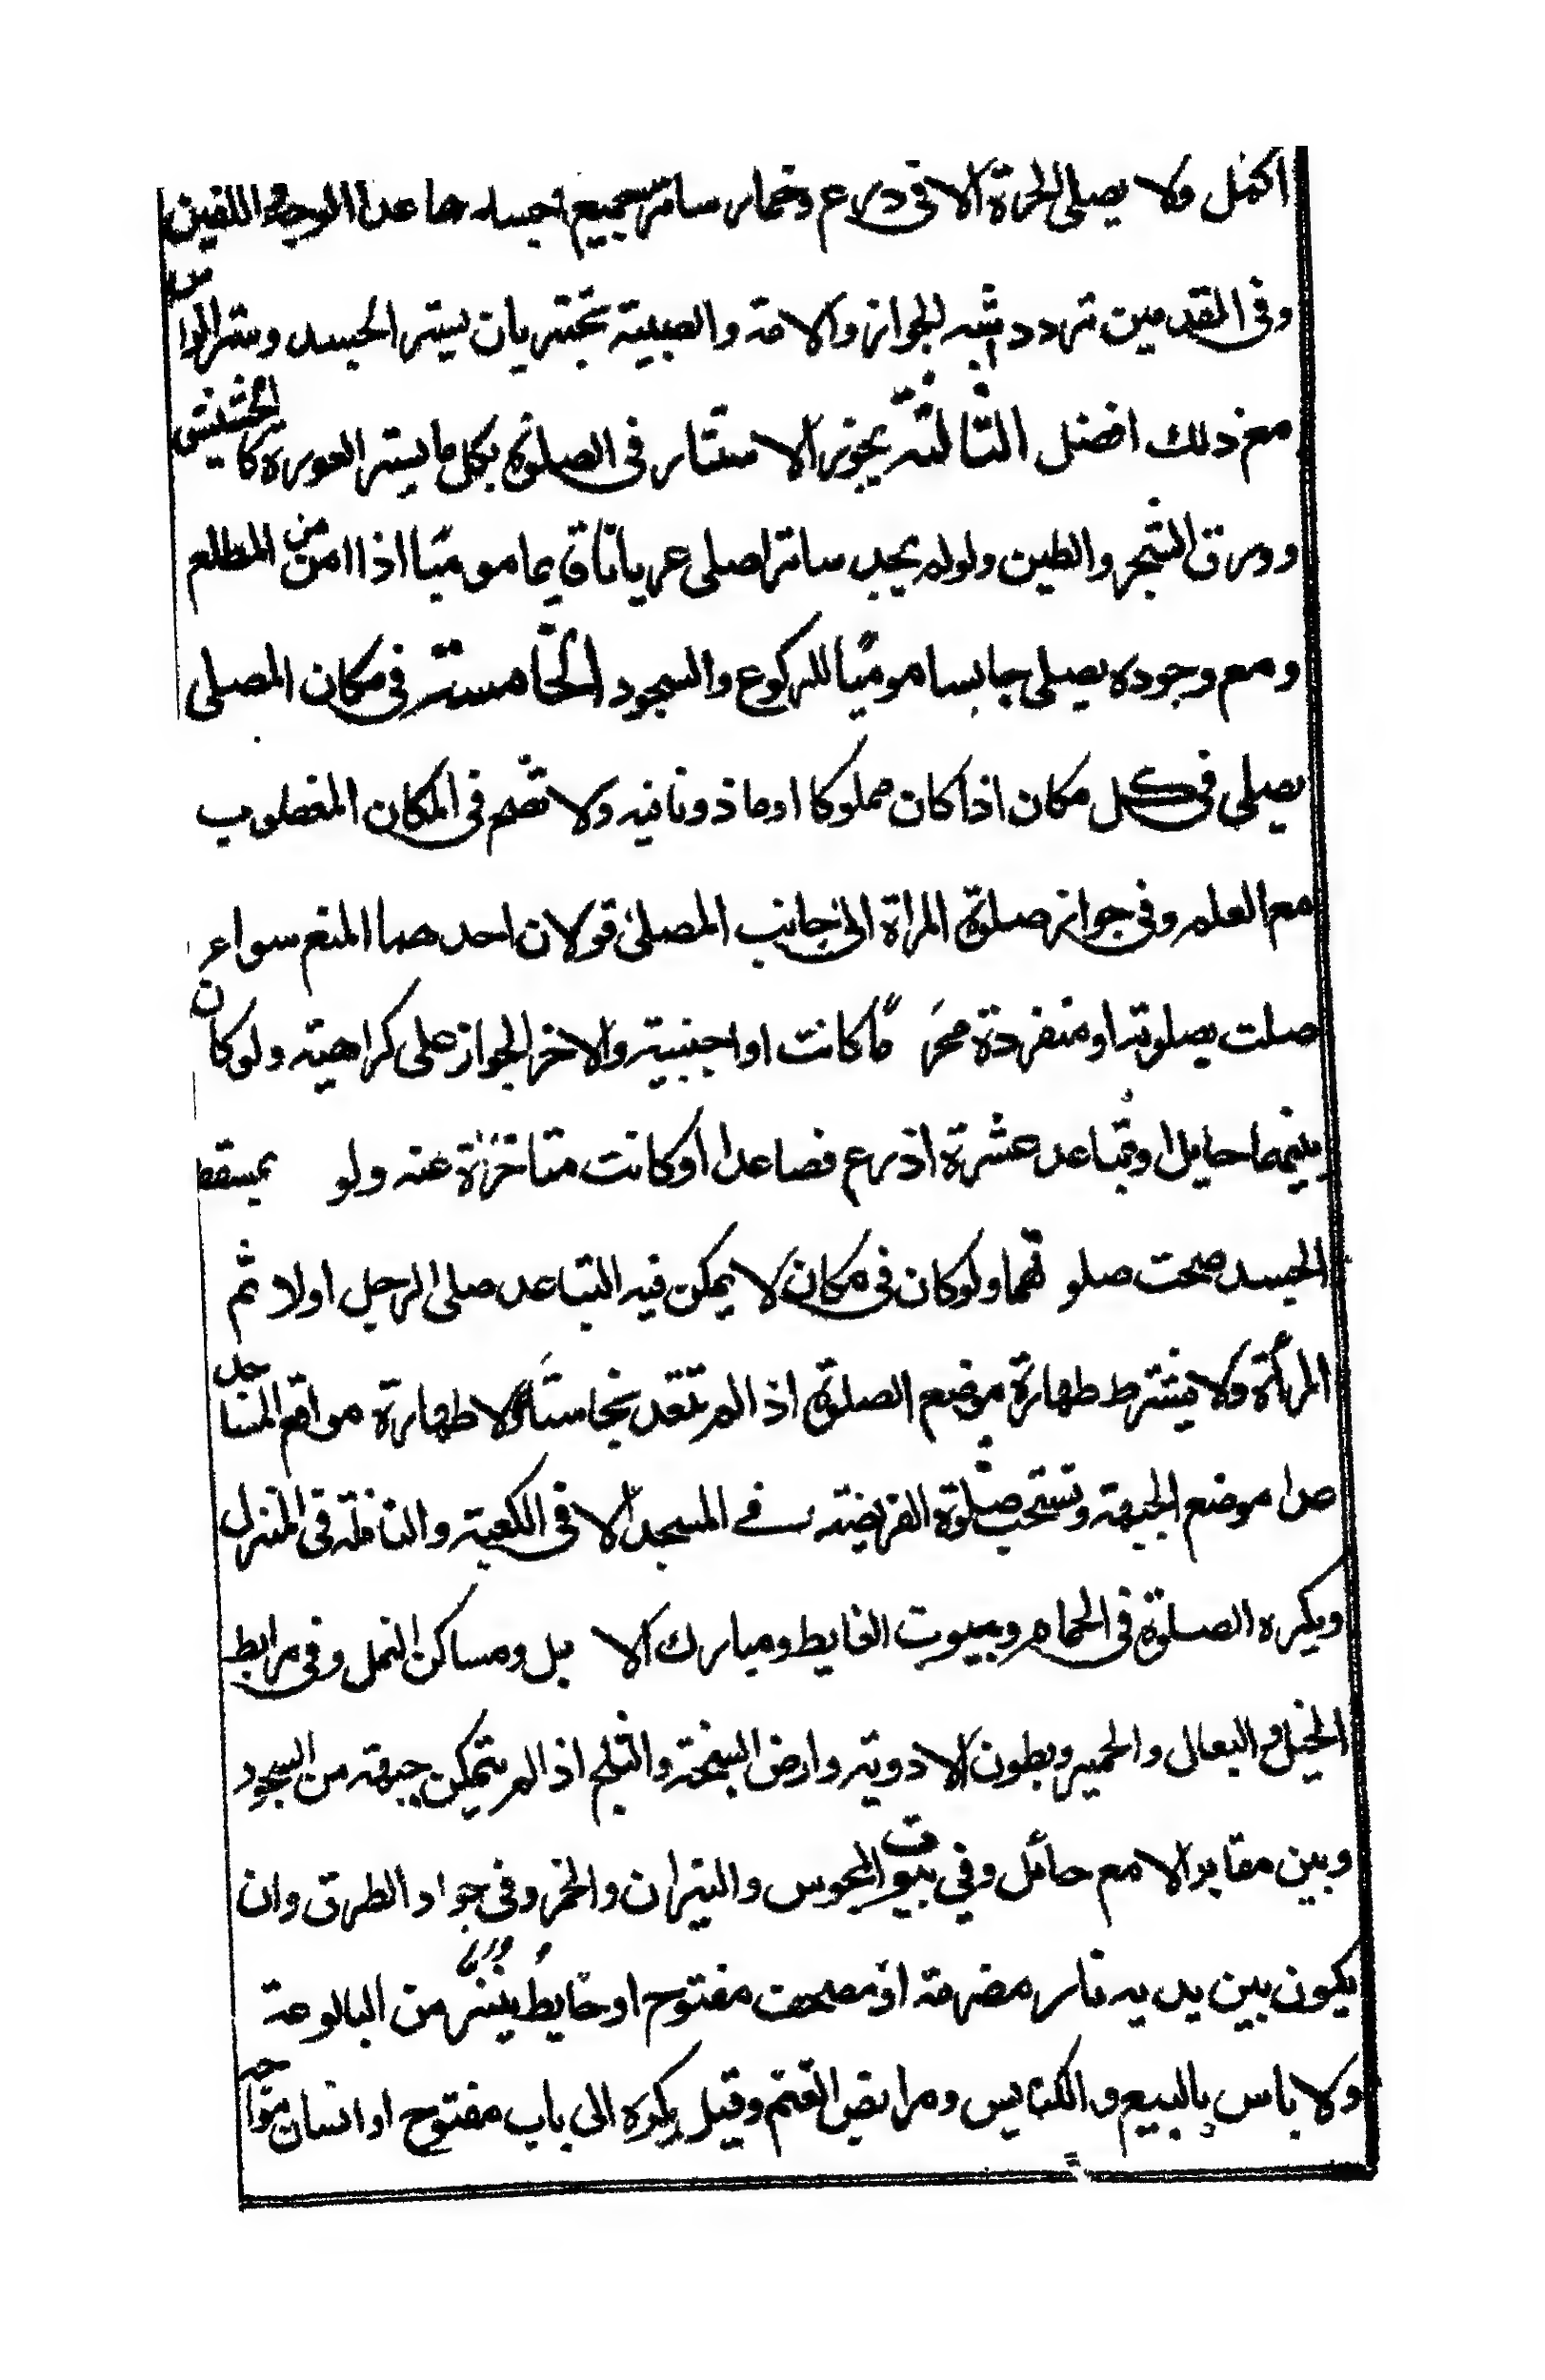 اكمل ولا يصلى الحرة الا فى درع وخمار ساتر لجميع جسدها عدا الوجه والكفين
وفى القدمين تردد اشبه الجواز والامة والصبية تجتزيان بستر الجسد وستر الراس
مع ذلك افضل الثالثة يجوز الاستتار فى الصلوة بكل ما يستر العورة كالحشيش
وورق الشجر والطين ولو لم يجد ساترا صلى عريانا قايما موميا اذا امن من المطلع
ومع وجوده يصلى جالسا موميا للركوع والسجود الخامسة فى مكان المصلى
يصلى فى كل مكان اذا كان مملوكا او ماذونا فيه ولا تصح فى المكان المغصوب
مع العلم وفى جواز صلوة المراة الى جانب المصلى قولان احدهما المنع سواء
صلت بصلوته او منفردة محرما كانت او اجنبية والاخر الجواز على كراهية ولو كان
بينهما حايل او تباعد عشرة اذرع فصاعدا او كانت متاخرة عنه ولو بمسقط
الجسد صحت صلوتهما ولو كان فى مكان لا يمكن فيه التباعد صلى الرجل اولا ثم
المرأة ولا يشترط طهارة موضع الصلوة اذا لم تتعد نجاسته ولا طهارة مواقع المساجد
عدا موضع الجبهة وتستحب صلوة الفريضة فى المسجد الا فى الكعبة والنافلة فى المنزل
ويكره الصلوة فى الحمام وبيوت الغايط ومبارك الابل ومساكن النمل وفى مرابط
الخيل والبغال والحمير وبطون الاودية وارض السبخة والثلج اذا لم يتمكن جبهته من السجود
وبين مقابر الا مع حائل وفى بيوت المجوس والنيران والخمر وفى جواد الطرق وان
يكون بين يديه نار مضرمة او مصحف مفتوح او حايط ينز من البالوعة
ولا باس بالبيع والكنايس ومرابض الغنم وقيل يكره الى باب مفتوح او انسان مواجه